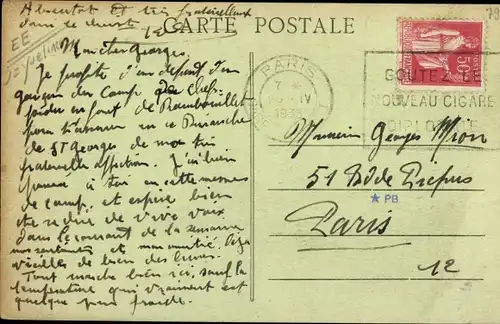 CARTE POSTALE
Absentat Et très fraternellement
dans le christ
EE
Yvelines
Mon cher Georges,
Je profite d'un départ d'un
garçon du Camp de Chef-
en forêt de Rambouillet
pour t'assurer en ce Dimanche
de St Georges de ma très
fraternelle affection. J'ai bien
pensé à toi en cette messe
de camp, et espère bien
te redire de vive voix
dans le courant de la semaine
mes sentiments et mon amitié.
de bien des
Tout marche bien ici, sauf la
température qui vraiment est
quelque peu froide.
PARIS
7 *
IV
GOUTEZ LE
NOUVEAU CIGARE
DIPLOMATE
50c
Monsieur Georges Mion
51 Bd de Picpus
★ PB
Paris
12